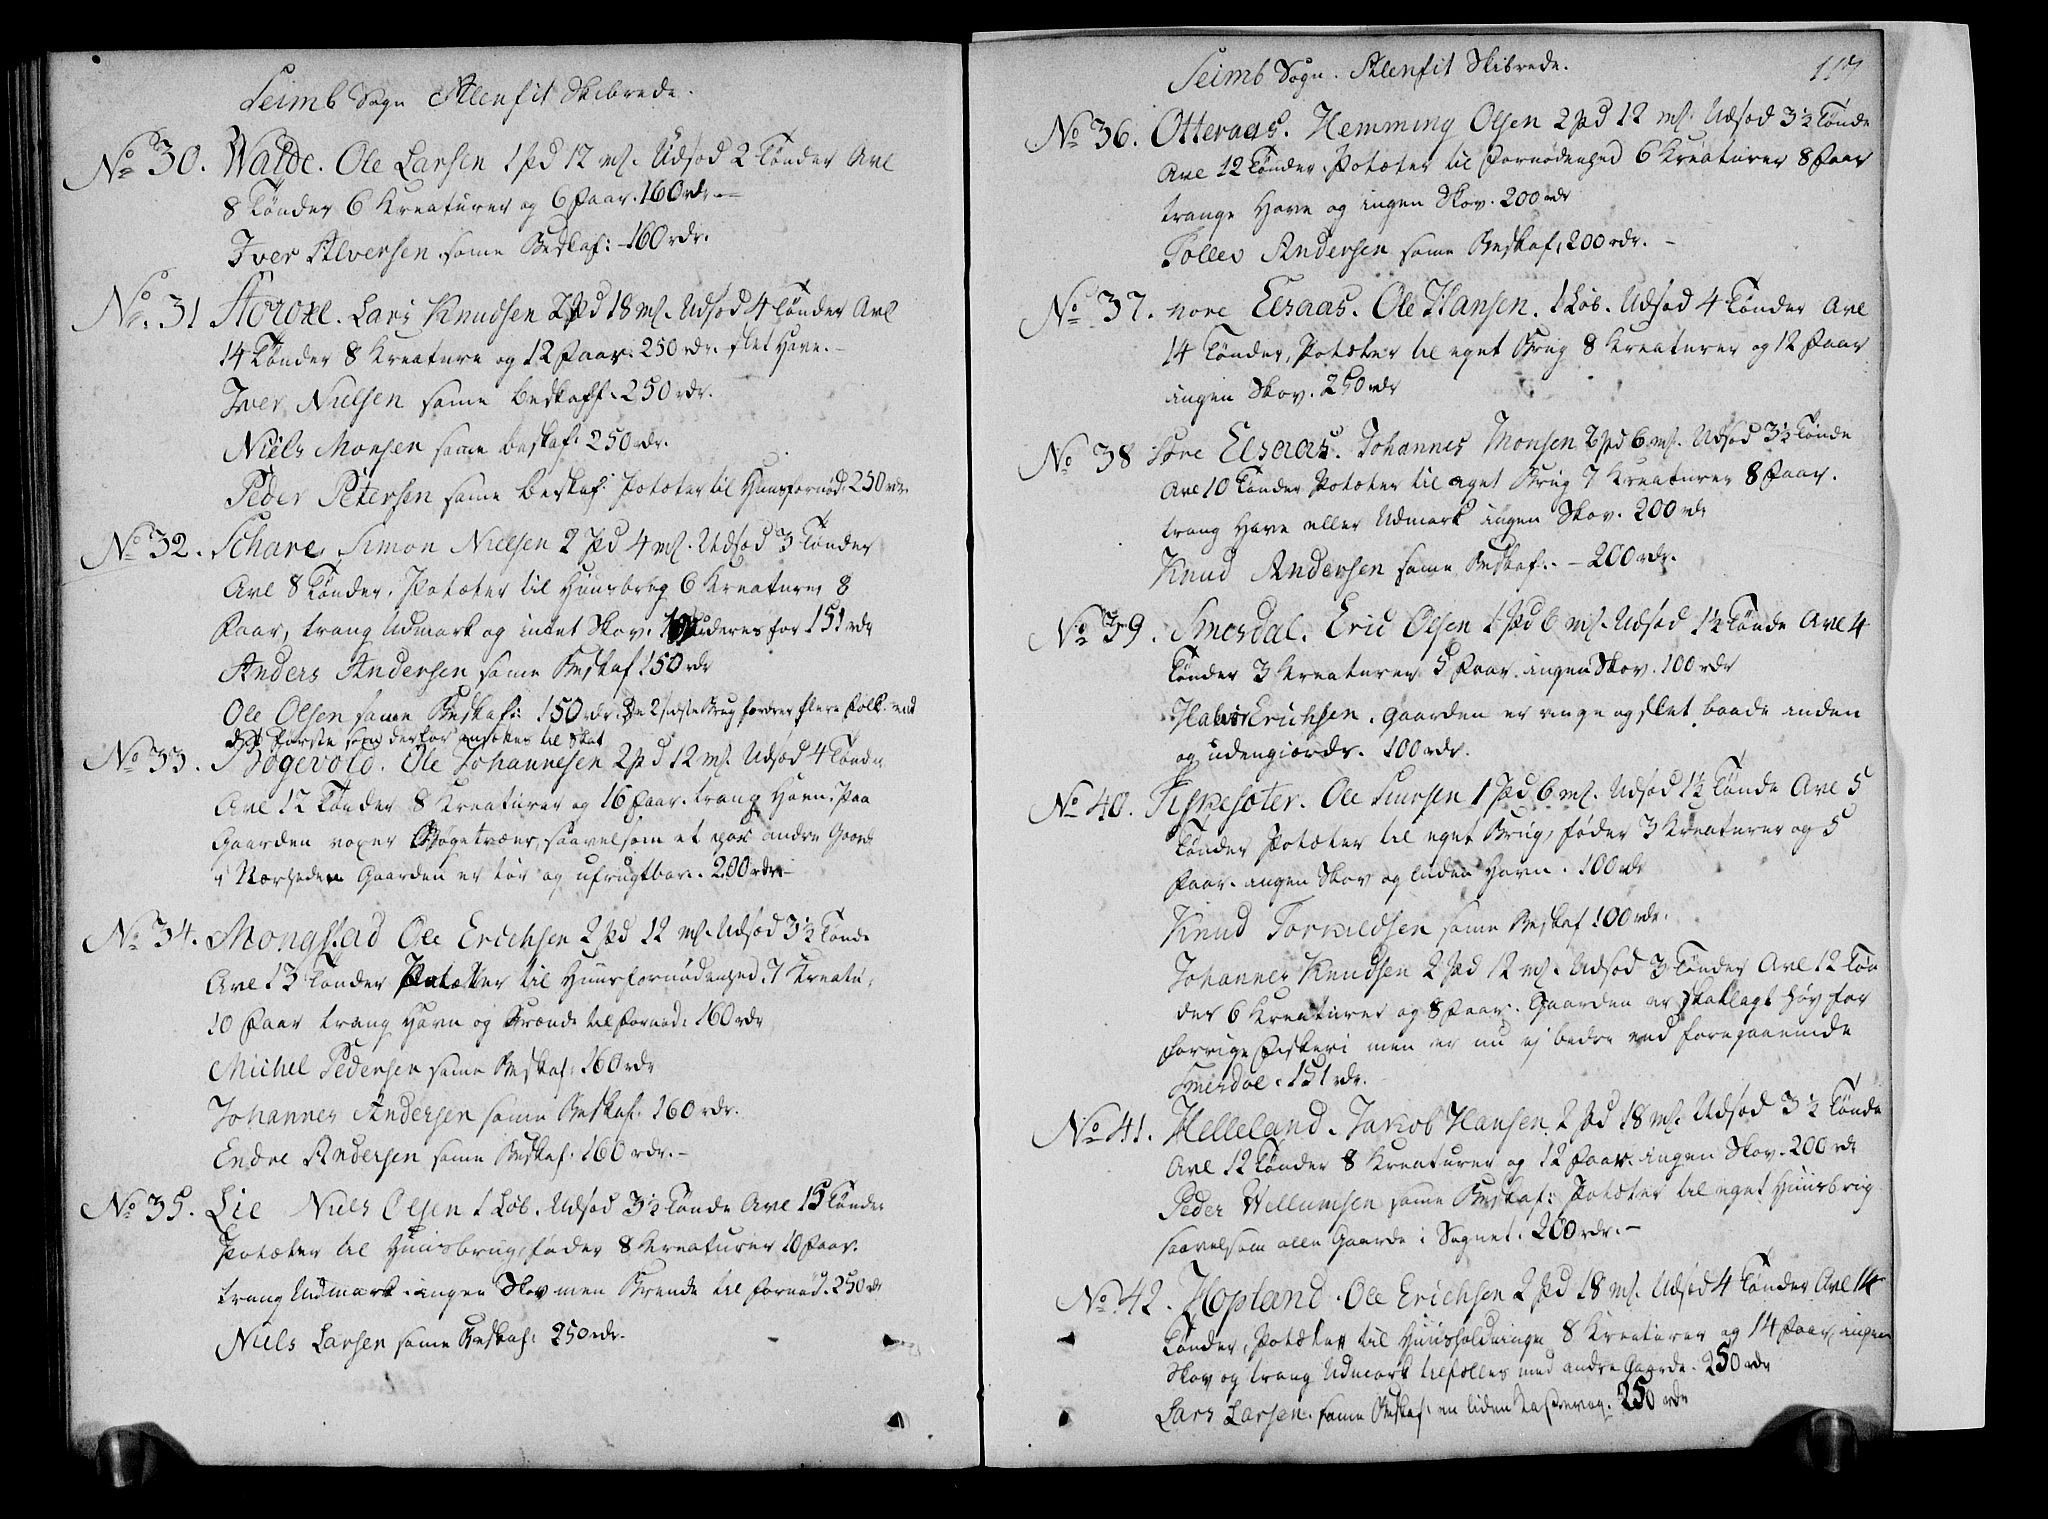 Seimb Sogn Alenfit Skibrede.
No 30. Walde. Ole Larsen 1 pd 12 mk. Udsød 2 Tønder Avl
8 Tønder 6 Kreaturer og 6 Faar. 160 rdr. –
Iver Alversen same Beskaf: - 160 rdr.
No. 31 Lars Knudsen 2 pd 18 mk. Udsød 4 Tønder Avl
14 Tønder 8 Kreature og 12 Faar. 250 rdr. slet Have. –
Iver Nielsen same beskaff. 250 rdr.
Niels Monsen same beskaf: 250 rdr.
Peder Petersen same beskaf: Potæter til Huusfornød: 250 rdr
No 32. Schare Simon Nielsen 2 pd 4 mk. Udsød 3 Tønder
Avl 8 Tønder. Potæter til Huusbrug 6 Kreaturer 8
Faar, trang Udmark og intet Skov. for 151 rdr
Anders Andersen same Beskaf 150 rdr
Ole Olsen same Beskaf: 150 rdr. De 2 sidste Brug fordrer flere Folk end
det første som derfor ansættes til Skat
No 33. Bøgevold. Ole Johannesen 2 pd 12 mk. Udsød 4 Tønder
Avl 12 Tønder 8 Kreaturer og 16 Faar. trang Havn. Paa
Gaarden voxer Bøgetræer, saavelsom et par andre Gaarde
i Nærheden Gaarden er tør og ufrugtbar. 200 rdr. –
No 34. Mongstad Ole Erichsen 2 pd 12 mk. Udsød 3½ Tønde
Avl 13 Tønder Potætter til Huusfornødenhed. 7 Kreatu:
10 Faar trang Havn og Brænde til Fornød: 160 rdr
Michel Pedersen same Beskaf: 160 rdr
Johannes Andersen same Beskaf: 160 rdr.
Endre Andersen same Beskaf: 160 rdr. –
No 35. Lie Niels Olsen 1 Løb. Udsød 3½ Tønde Avl 15 Tønder
Potæter til Huusbrug, føder 8 Kreaturer 10 Faar.
trang Udmark. ingen Skov men Brende til fornød. 250 rdr
Niels Larsen same Beskaf: 250 rdr.
Seimb Sogn. Alenfit Skibrede. 117
No 36. Otteraas. Hemming Olsen 2 pd 12 mk. Udsød 3½ Tønde
Avl 12 Tønder. Potæter til Fornødenhed 6 Kreaturer 8 Faar
trange Have og ingen Skov. 200 rdr
Tollev Andersen same Beskaf: 200 rdr. –
No 37. nore Elsaas. Ole Hansen. 1 Løb. Udsød 4 Tønder Avl
14 Tønder, Potæter til eget Brug 8 Kreaturer og 12 Faar
ingen Skov. 250 rdr
No 38 søre Elsaas. Johannes Monsen 2 pd 6 mk. Udsød 3½ Tønde
Avl 10 Tønder Potæter til eget Brug 7 Kreaturer 8 Faar.
trang Have eller Udmark ingen Skov. 200 rdr
Knud Andersen same Beskaf: – 200 rdr.
No 39. Smørdal. Eric Olsen 1 pd 6 mk. Udsød 1½ Tønde Avl 4
Tønder 3 Kreaturer 5 Faar. ingen Skov. 100 rdr
Erichsen. Gaarden er ringe og slet baade inden
og udengiærds. 100 rdr.
No 40. Fiskesæter. Ole Siursen 1 pd 6 mk. Udsød 1½ Tønde Avl 5
Tønder Potæter til eget Brug, føder 3 Kreaturer og 5
Faar. ingen Skov og liden Havn. 100 rdr
Knud Torkildsen same Beskaf 100 rdr.
Johannes Knudsen 2 pd 12 mk. Udsød 3 Tønder Avl 12 Tøn
der 6 Kreaturer og 8 Faar. Gaarden er skatlagt høy for
forrige Fiskeri men er nu ej bedre end foregaaende
151 rdr.
No 41. Helleland. Jakob Hansen 2 pd 18 mk. Udsød 3½ Tønde
Avl 12 Tønder 8 Kreaturer og 12 Faar. ingen Skov. 200 rdr
Peder Willumsen same Beskaf: Potæter til eget Huusbrug
saavelsom alle Gaarde i Sognet. 200 rdr. –
No. 42. Hopland. Ole Erichsen 2 pd 18 mk. Udsød 4 Tønder Avl 14
Tønder, Potæter til Huusholdninge 8 Kreaturer og 14 Faar, ingen
Skov og trang Udmark tilfælles med andre Gaarde. 250 rdr
Lars Larsen. same Beskaf: en liden 250 rdr